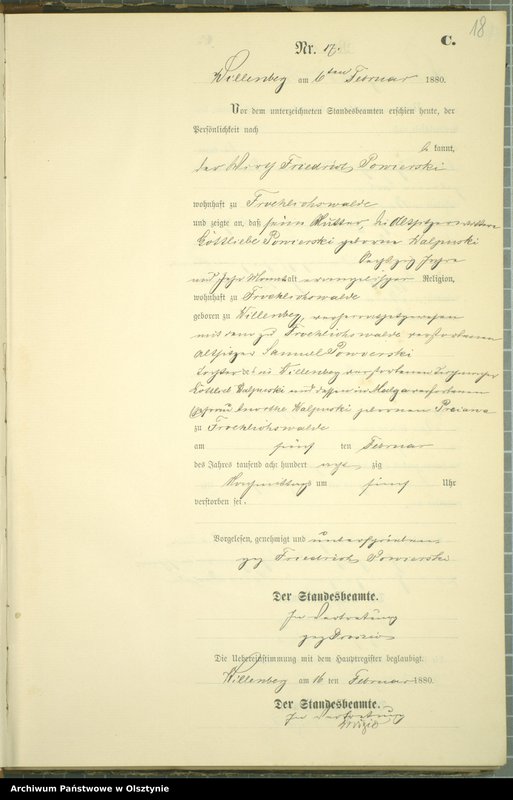 18
C.
Nr. 17.
Willenberg am 6ten Februar 1880.
Vor dem unterzeichneten Standesbeamten erschien heute, der
Persönlichkeit nach
be kannt,
der Wirth Friedrich Powierski
wohnhaft zu Froehlichswalde
und zeigte an, daß seine Mutter, die Altsitzerwittwe
Gottliebe Powierski geborene Kalzinski
sechszig Jahre
und zehn Monat alt evangelischer Religion,
wohnhaft zu Froehlichswalde
geboren zu Willenberg, verheirathet gewesen
mit dem zu Froehlichswalde verstorbenen
Altsitzer Samuel Powierski
Tochter des in Willenberg verstorbenen
Gottlieb und dessen in Malga verstorbenen
Ehefrau Dorothe geborenen
zu Froehlichswalde
am fünf ten Februar
des Jahres tausend acht hundert acht zig
Vormittags um fünf Uhr
verstorben sei.
Vorgelesen, genehmigt und unterschrieben
gez Friedrich Powierski
Der Standesbeamte.
In Vertretung
gez
Die Uebereinstimmung mit dem Hauptregister beglaubigt.
Willenberg am 16 ten Februar 1880.
Der Standesbeamte.
In Vertretung
Archiwum Państwowe w Olsztynie